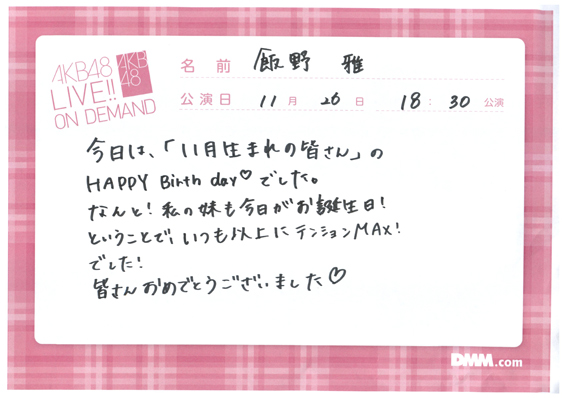 AKB48
LIVE!!
ON DEMAND
AKB
48
名前 飯野 雅
公演日 11月 26日 18:30 公演
今日は、「11月生まれの皆さん」の
HAPPY Birth day♡でした。
なんと!私の妹も今日がお誕生日!
ということで、いつも以上にテンションMAX!
でした!
皆さんおめでとうございました♡
DMM.com